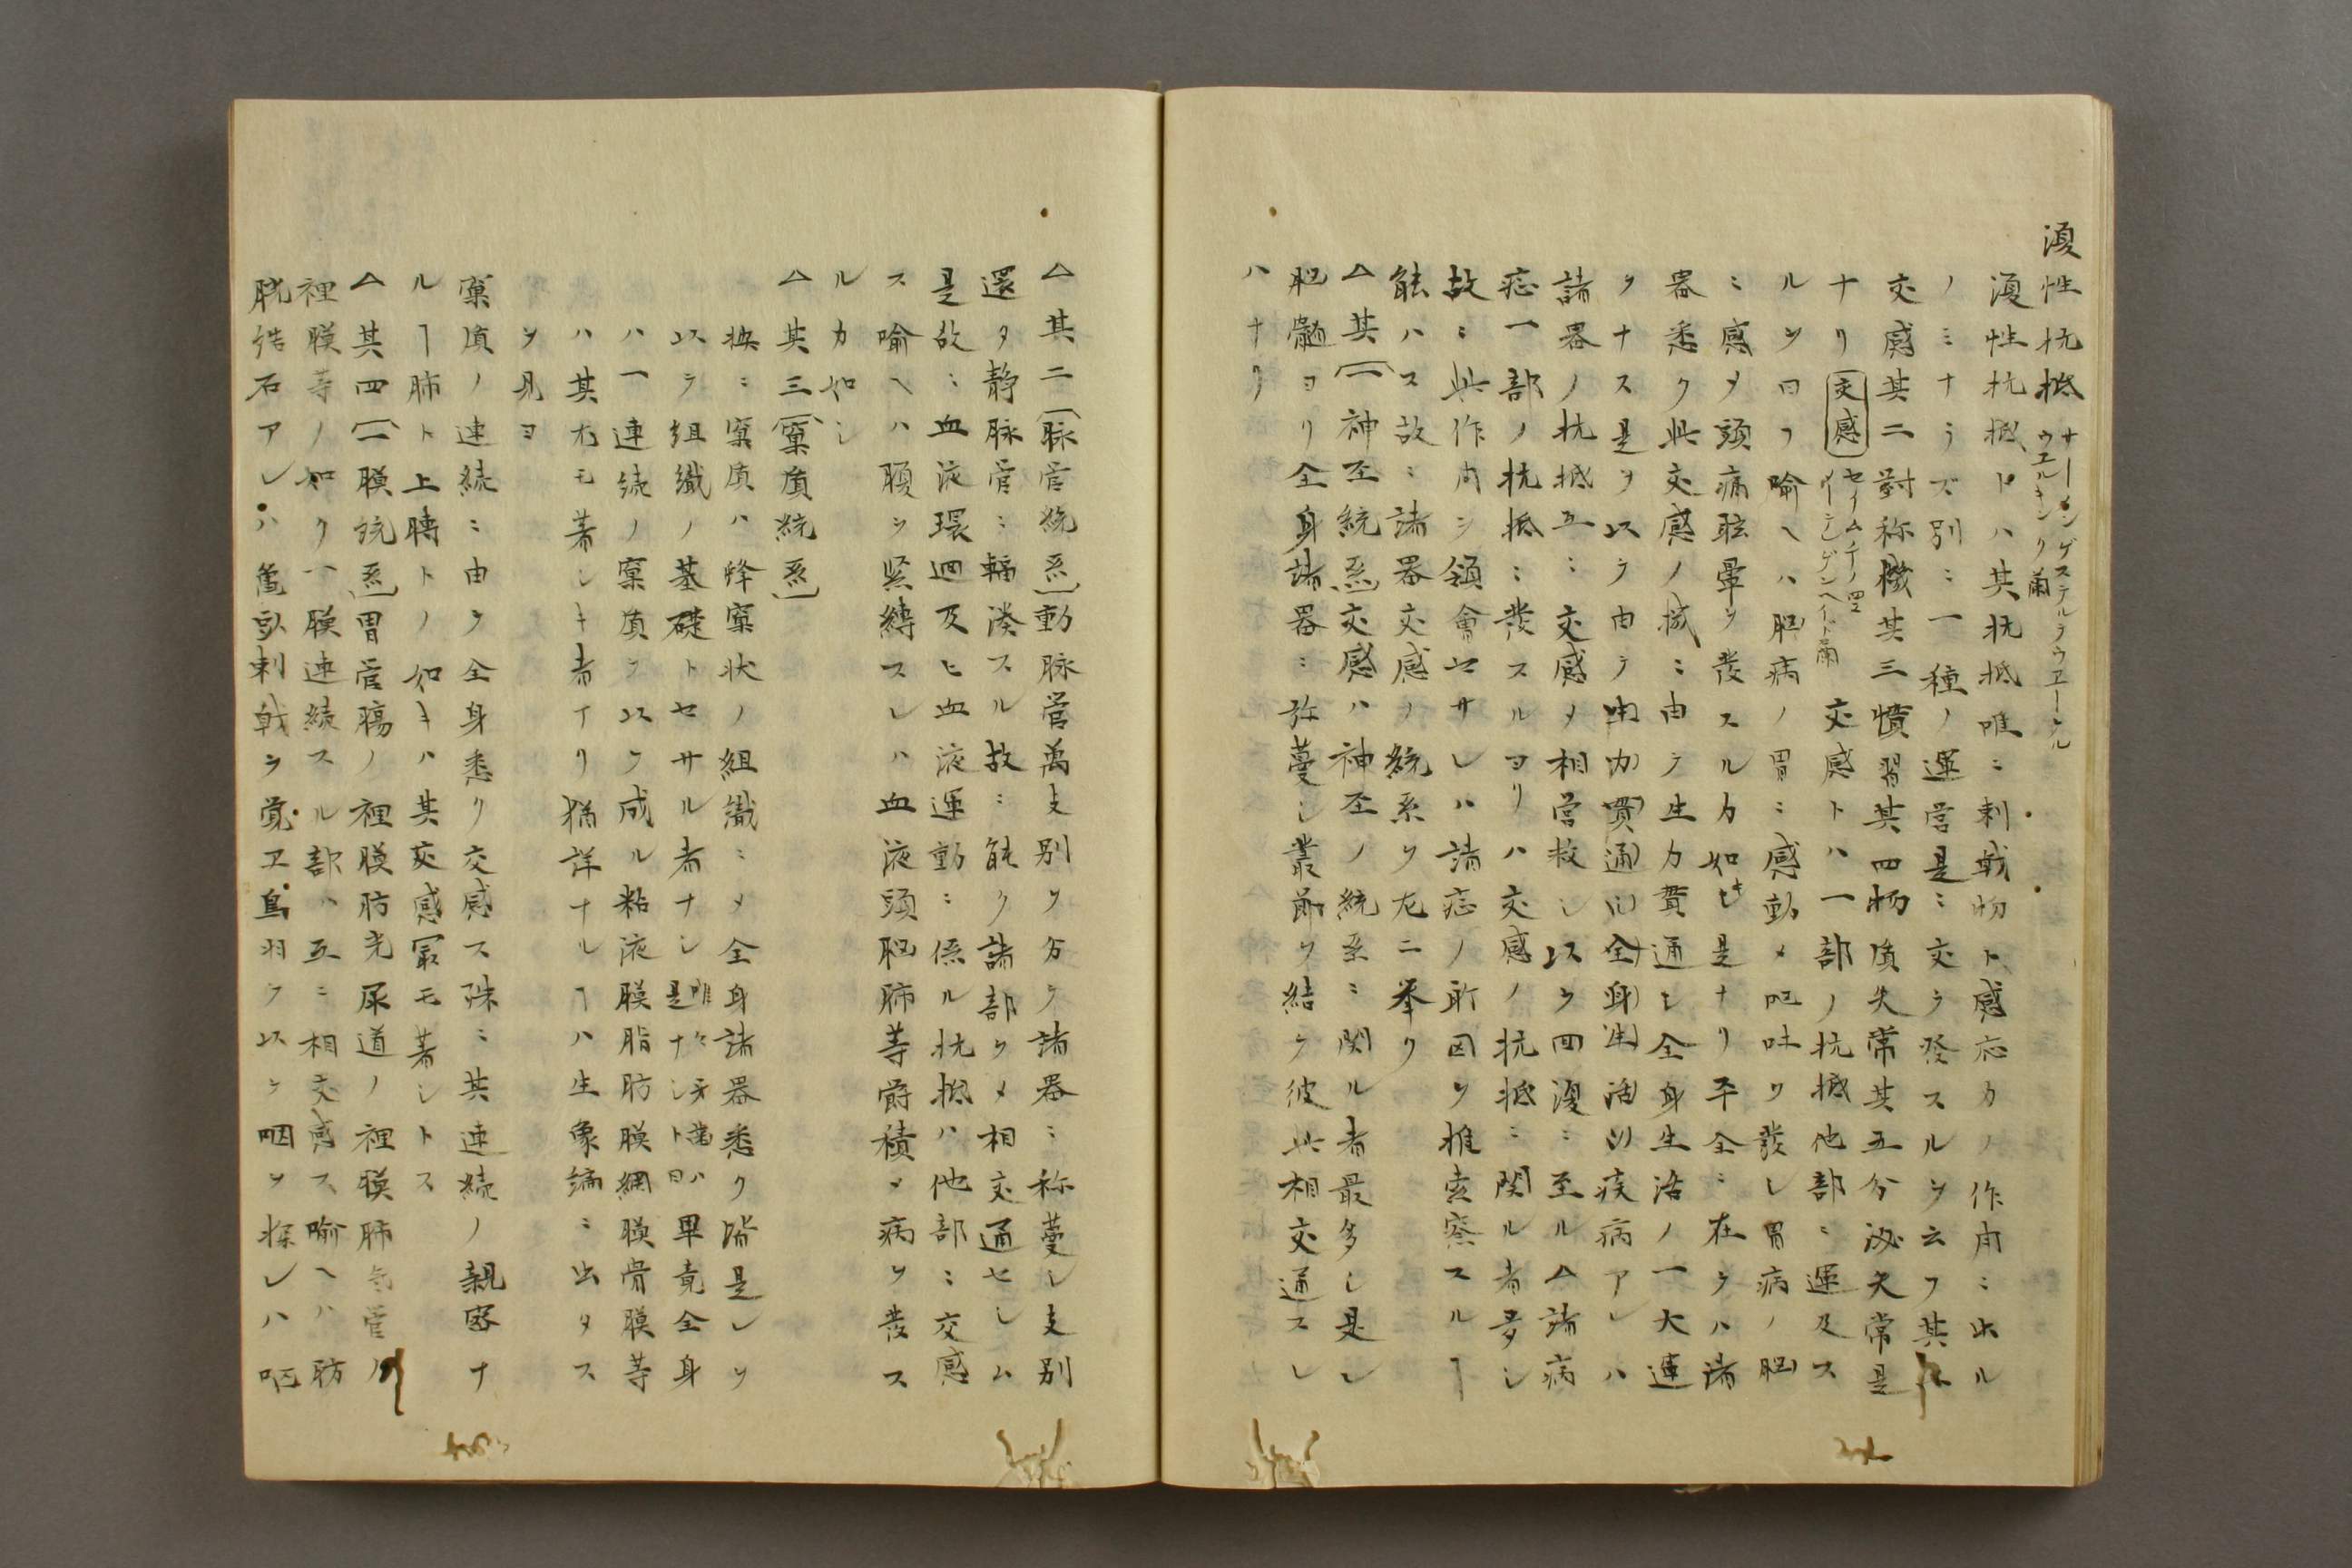 復性抗抵 サーメンゲステルテウエーンル ウエルキンク蘭
復性抗抵トハ其抗抵唯ニ刺戟物ト感応力ノ作用ニ出ル
ノミナラズ別ニ一種ノ運営是ニ交ヲ發スルヲ云フ其一
交感其二對称機其三慣習其四物質失常其五分泌失常是
ナリ 交感 交感トハ一部ノ抗抵他部ニ運及ス
ルヲ曰フ喻ヘハ脳病ノ胃ニ感動メ嘔吐ヲ發シ胃病ノ脳
ニ感メ頭痛眩暈ヲ發スルカ如キ是ナリ平全ニ在テハ諸
器悉ク此交感ノ機ニ由テ生力貫通シ全身生活ノ一大連
ヲナス是ヲ以テ由テ疾病アレハ
諸器ノ抗抵互ニ交感メ相営救シ以テ回復ニ至ル△諸病
応一部ノ抗抵ニ發スルヨリハ交感ノ抗抵ニ関ル者多シ
故ニ此作用ヲ領會セサレハ諸応ノ所因ヲ推索察スルヿ
能ハス故ニ諸器交感ノ統系ヲ左ニ挙ク
△其一(神圣統系)交感ハ神圣ノ統系ニ関ル者最多シ是レ
脳髄ヨリ全身諸器ニ弥蔓シ叢節ヲ結テ彼此相交通スレ
ハナリ
△其二(脉官統系)動脉管萬支別ヲ分テ諸器ニ称蔓シ支別
還タ静脉管ニ輻湊スル故ニ能ク諸部ヲメ相交通セシム
是故ニ血液環廻及ヒ血液運動ニ係ル抗抵ハ他部ニ交感
ス喻ヘハ頸ヲ緊縛スレハ血液頭脳肺等欝積メ病ヲ發ス
ルカ如シ
△其三(窠質統系)
按ニ窠質ハ蜂窠状ノ組織ニメ全身諸器悉ク皆是レヲ
以テ組織ノ基礎トセサル者ナシ 唯々牙歯ハ是ナシト曰 畢竟全身
ハ一連続ノ窠質ヲ以テ成ル粘液膜脂肪膜網膜骨膜等
ハ其尤モ著シキ者ナリ猶詳ナルヿハ生象編ニ出タス
ヲ見ヨ
窠質ノ連続ニ由テ全身悉ク交感ス殊ニ其連続ノ親密ナ
ルヿ肺ト上膊トノ如キハ其交感最モ著シトス
△其四(一膜統系)胃管腸ノ裡膜肪光尿道ノ裡膜肺気管ノ
裡膜等ノ如ク一膜連続スル部ハ互ニ相交感ス喻ヘハ肪
胱結石アレハ亀頭刺戟ヲ覚ヱ鳥羽ヲ以テ咽ヲ探レハ嘔